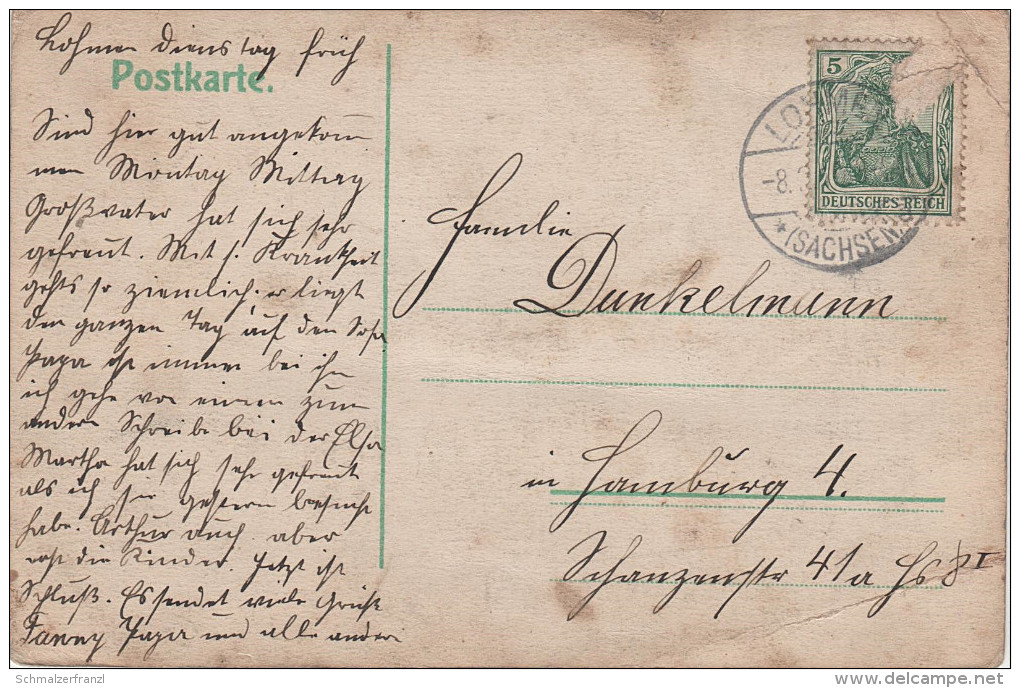 Lohmen dienstag früh
Postkarte.
Sind hier gut angekom
men Montag Mittag
Großvater hat sich sehr
gefreut. Mit s. Krankheit
gehts so ziemlich, er liegt
den ganzen Tag auf den Sofa.
Papa ist immer bei ihm
ich gehe von einem zum
andern Schreibe bei der Elsa
Martha hat sich sehr gefreut
als ich sie gestern besucht
habe. Arthur auch aber
die Kinder. Jetzt ist
Schluß. Es sendet viele Grüße
Fanny Papa und alle andern
5
DEUTSCHES REICH
LOHMEN
-8.
*(SACHSEN)
Familie
Dunkelmann
in Hamburg 4.
Schanzenstr 41a Hs 8 I
Schmalzerfranzl